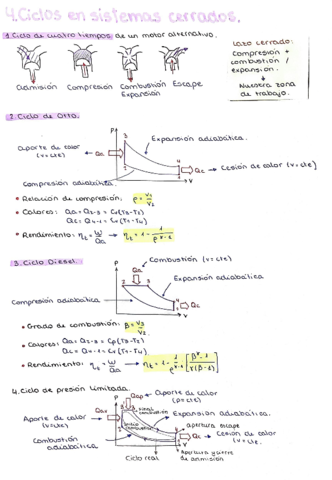 4. Ciclos en sistemas cerrados.
1. Ciclo de cuatro tiempos de un motor alternativo.
Lazo cerrado:
Compresión +
combustión /
expansión.
Nuestra zona
de trabajo.
Admisión Compresión Combustión Escape
Expansión
2. Ciclo de Otto.
P
3
Expansión adiabática.
Aporte de calor
(v=cte)
Qa
2
4
1
Qc → Cesión de calor (v=cte)
V
Compresión adiabática.
• Relación de compresión: ρ = V1/V2
• Calores: Qa = Q2-3 = Cv(T3-T2)
Qc = Q4-1 = Cv(T1-T4)
• Rendimiento: ηt = W/Qa → ηt = 1 - 1/ρ^γ-1
3. Ciclo Diesel.
P
Qa
Combustión (v=cte)
2 3
Expansión adiabática
Compresión adiabática
4
1
Qc
V
• Grado de combustión: β = V3/V2
• Calores: Qa = Q2-3 = Cp(T3-T2)
Qc = Q4-1 = Cv(T1-T4)
• Rendimiento: ηt = W/Qa → ηt = 1 - 1/ρ^γ-1 [β^γ-1/γ(β-1)]
4. Ciclo de presión limitada.
P
Qap
Aporte de calor
(p=cte)
Aporte de calor
(v=cte)
Qav
Final combustión
Expansión adiabática.
Inicio combustión
apertura escape
Qc → Cesión de calor
(v=cte.
Combustión
adiabática
V
Ciclo real
Apertura y cierre
de admisión